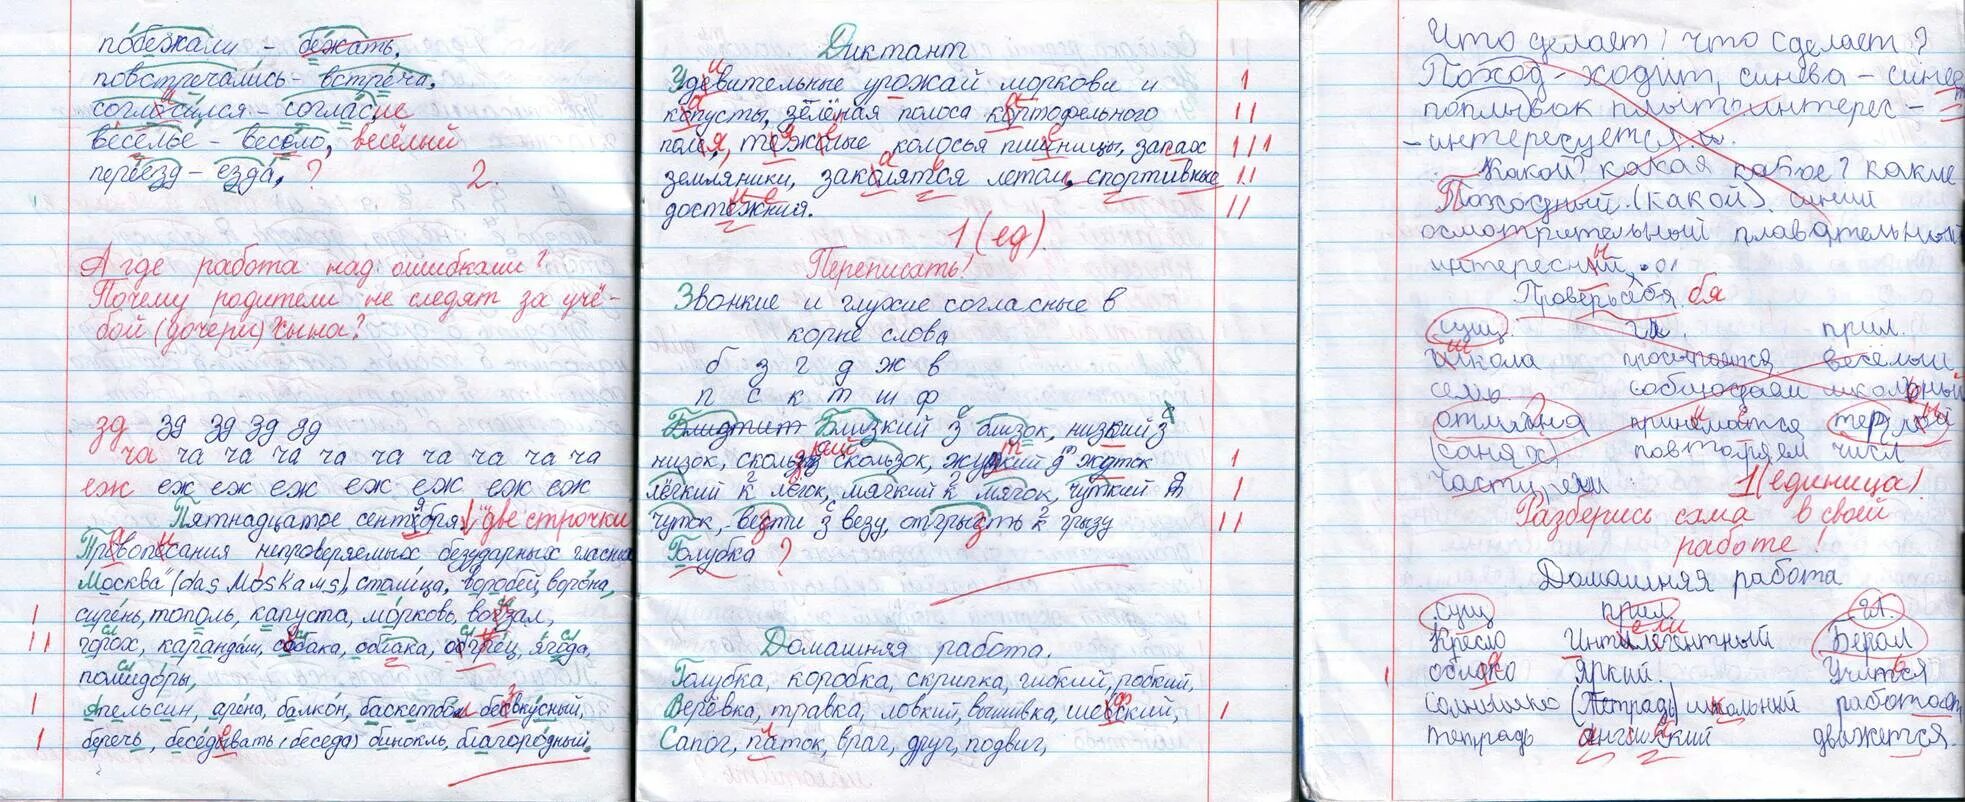 побежали - бежать,
повстречались - встреча,
согласился - согласие
веселье - весело, весёлый
переезд - езда, ? 2.
А где работа над ошибками?
Почему родители не следят за учё-
бой (дочери) сына?
зд зд зд зд зд
ча ча ча ча ча ча ча ча ча ча
еж еж еж еж еж еж еж еж
Пятнадцатое сентября "две строчки
Правописания непроверяемых безударных гласных
Москва (das Moskaus), столица, воробей, ворона,
сирень, тополь, капуста, морковь, вокзал,
горох, карандаш, собака, огурец, ягода,
помидоры,
апельсин, арена, балкон, баскетбол бесвкусный,
беречь, беседывать (беседа) бинокль, благородный.
Диктант
Удевительные урожай моркови и
капусты, зелёная полоса картофельного
поля, тежолые колосья пшеницы, запах
земляники, закалятся летом, спортивные
достежния.
1 (ед).
Переписать!
Звонкие и глухие согласные в
корне слова
б з г д ж в
п с к т ш ф
Близкий з близок, низкий з
низок, скользкий скользок, жудкий д жуток
лёгкий к легок, мягкий к мягок, чуткий т
чуток, вести з везу, отгрысть к грызу
Голубка ?
Домашняя работа.
Голубка, коробка, скрипка, гибкий, робкий,
Верёвка, травка, ловкий, вышивка, шовский,
Сапог, паток, врач, друг, подвиг,
Что делает? что сделает?
Поход - ходит, синева - синеет
поплывок плыть интерес -
- интересуется.
Какой? какая какое? какие
Походный (какой). синий
осмотрительный плавательный
интересный,
Проверь себя бя
сущ. гл. прил.
школа просыпаются весёлый
семь соблюдаем школьный
отмена принимается
(санях) повторяем числ
части речи 1 (единица)
Разберись сама в своей
работе!
Домашняя работа
сущ прил гл.
Кресло Интилегентный Берал
облако яркий. Учиться
солнышко (Тетрадь) школьный работает
тетрадь английский движется.